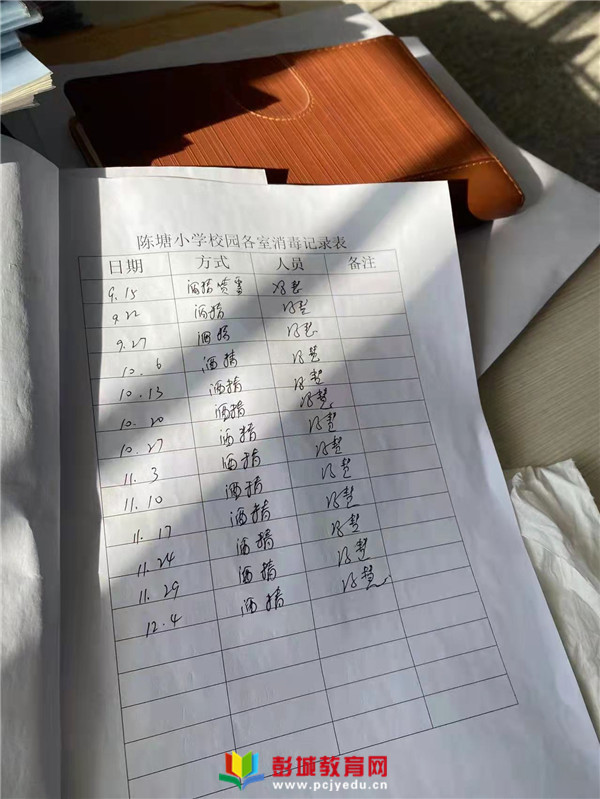 陈塘小学校园各室消毒记录表
日期 方式 人员 备注
9.15 酒精喷雾
9.22 酒精
9.27 酒精
10.6 酒精
10.13 酒精
10.20 酒精
10.27 酒精
11.3 酒精
11.10 酒精
11.17 酒精
11.24 酒精
11.29 酒精
12.4 酒精
彭城教育网
www.pcjyedu.cn